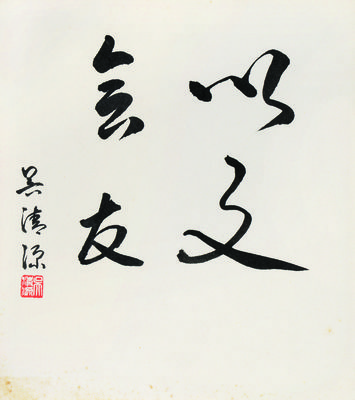 以文
会友
吴清源